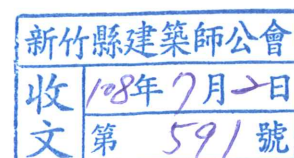 新竹縣建築師公會
收文
108年7月2日
第591號